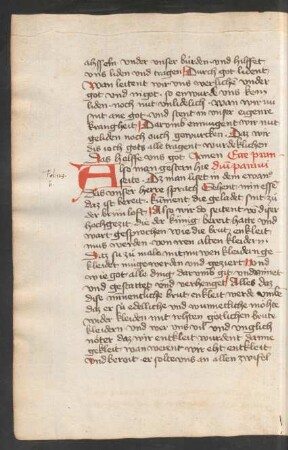 ahsseln vnder vnser burden vnd hilffet
vns liden vnd tragen Durch got lident
wan leitent wir vns verlichent vnder
got vnd in got so enwurde vns kein
liden noch nit vnlidelich wan wir nu
sint ane got vnd stent in vnser eigenre
krangheit Dar vmb enmugent wir nut
geliden noch ouch gewurcken Das wir
dis ioch gotz alle tragent wurdeklichen
Das helffe vns got Amen Ecce pran
Also man gestern hie dium paraui
seite Do man liset in dem ewan
Das vnser herre sprach Sehent min esse
daz ist bereit kumment die geladet sint zu
der brunloft Also wir do seitent wie diser
hochgezit die der kunig bereit hatte vnd
wart gesprochen wie die brut enkleit
mus werden von iren alten kleidern
Daz su zu male mit nuwen kleidern ge
kleidet muge werden vnd gezieret Vnd
wie got alle ding dar vmb git vnd nimmet
vnd gestattet vnd verhenget Alles daz
dise minnenliche brut enkleit werde vmbe
daz er su edellich vnd wunnekliche moge
wider kleiden mit rehten gotlichen brute
kleidern vnd wer vns vil vnd vnglich
noter daz wir entkleit wurdent danne
gekleit wan werent wir eht entkleit
vnd bereit er solte vns an allen zwifel